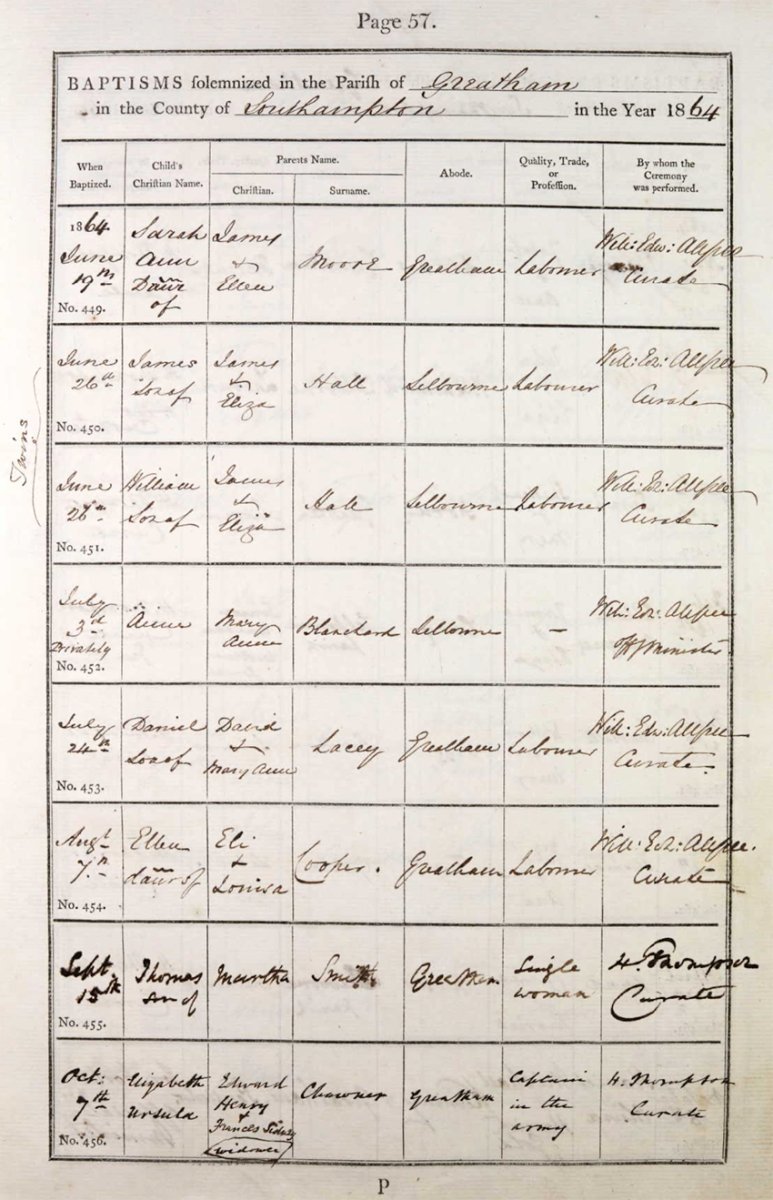 Page 57.
BAPTISMS solemnized in the Parish of Greatham
in the County of Southampton in the Year 1864
When Baptized.
Child's Christian Name.
Parents Name.
Christian.
Surname.
Abode.
Quality, Trade, or Profession.
By whom the Ceremony was performed.
1864 June 19th No. 449.
Sarah Ann Daur of
James & Ellen
Moore
Greatham
Labourer
Will: Edw: Allfree Curate
Twins
June 26th No. 450.
James Son of
James & Eliza
Hall
Selbourne
Labourer
Will: Ed: Allfree Curate
June 26th No. 451.
William Son of
James & Eliza
Hall
Selbourne
Labourer
Will: Ed: Allfree Curate
July 3d Privately No. 452.
Anne
Mary Anne
Blanchard
Selborne
-
Will: Edw: Allfree Minister
July 24th No. 453.
Daniel Son of
David & Mary Ann
Lacey
Greatham
Labourer
Will: Edw: Allfree Curate.
Augt 7th No. 454.
Ellen daur of
Eli & Louisa
Cooper.
Greatham
Labourer
Will: Edw: Allfree. Curate
Sept 15th No. 455.
Thomas son of
Martha
Smith
Greatham
Single woman
H. Thompson Curate
Oct: 7th No. 456.
Elizabeth Ursula
Edward Henry & Frances Sidney (widower)
Chawner
Greatham
Captain in the army
H. Thompson Curate
P